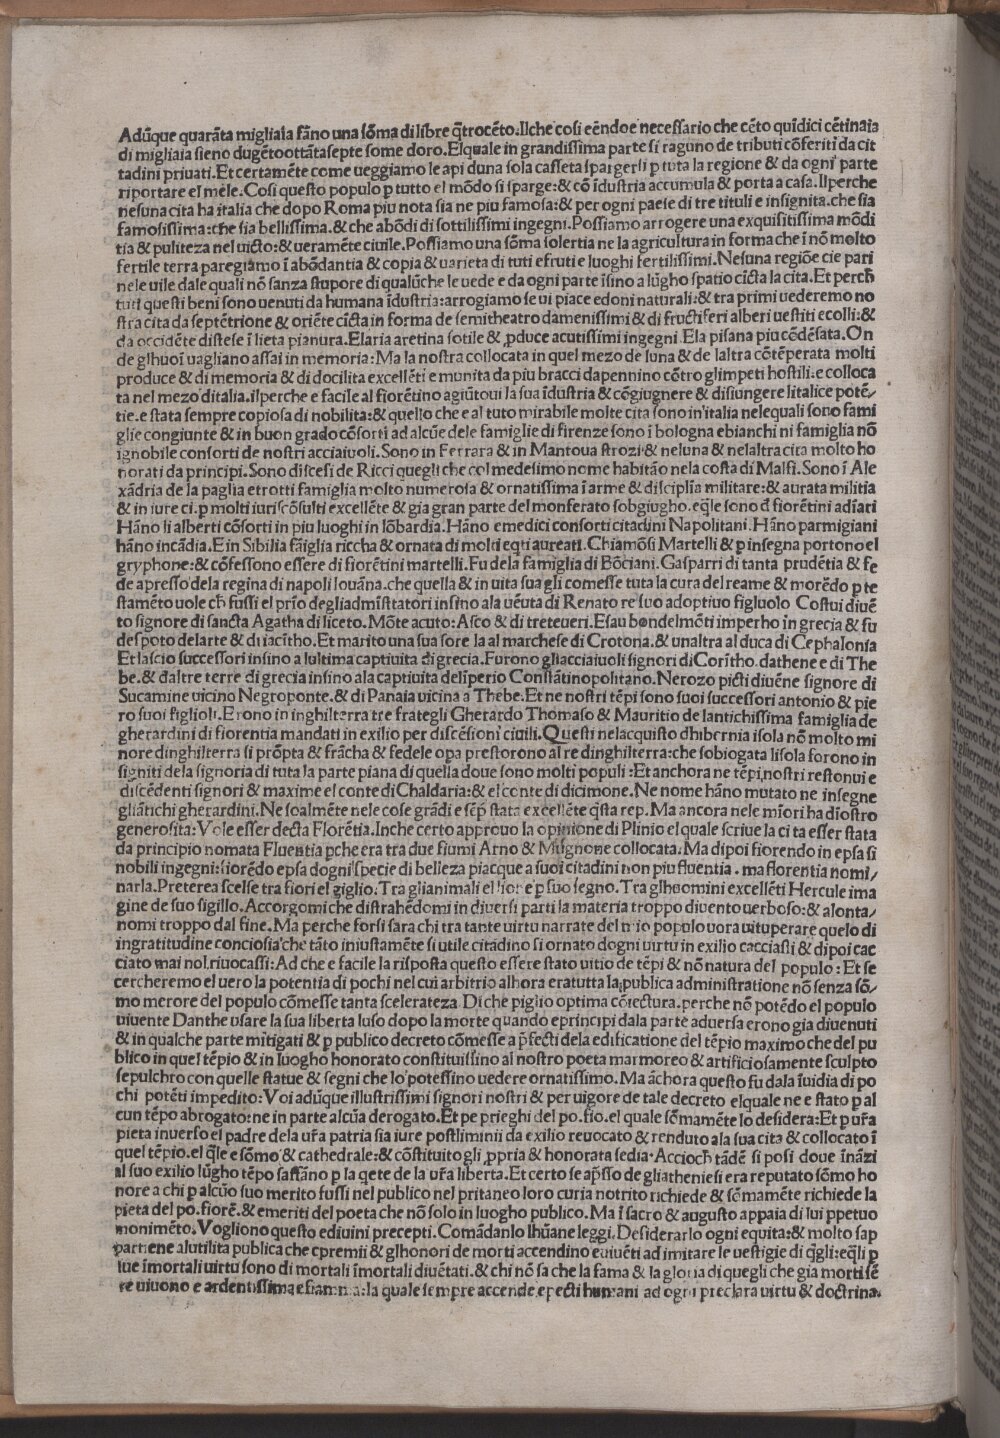 Adũque quarãta migliaia fãno una sõma di libre q̃trocẽto.Ilche cosi eẽndoe necessario che cẽto quĩdici cẽtinaia
di migliaia sieno dugẽtoottãtasepte some doro.Elquale in grandissima parte si raguno de tributi cõferiti da cit
tadini priuati.Et certamẽte come ueggiamo le api duna sola casseta spargersi p tuta la regione & da ogni parte
riportare el mele.Cosi questo populo p tutto el mõdo si sparge:& cõ ĩdustria accumula & porta a casa.Ilperche
nesuna cita ha italia che dopo Roma piu nota sia ne piu famosa:& per ogni paese di tre tituli e insignita.che sia
famosissima:che sia bellissima.& che abõdi di sottilissimi ingegni.Possiamo arrogere una exquisitissima mõdi
tia & puliteza nel uicto:& ueramẽte ciuile.Possiamo una sõma solertia ne la agricultura in forma che ĩ nõ molto
fertile terra paregiamo ĩ abõdantia & copia & uarieta di tuti efruti e luoghi fertilissimi.Nesuna regiõe cie pari
nele uile dale quali nõ sanza stupore di qualũche le uede e da ogni parte ĩsino a lũgho spatio cĩcta la cita.Et perch̃
tuti questi beni sono uenuti da humana ĩdustria:arrogiamo se ui piace edoni naturali:& tra primi uederemo no
stra cita da septẽtrione & oriẽte cĩcta in forma de semitheatro damenissimi & di fructiferi alberi uestiti ecolli:&
da occidẽte distese ĩ lieta pianura.Elaria aretina sotile & ꝓduce acutissimi ingegni.Ela pisana piu cõdẽsata.On
de glhuoĩ uagliano assai in memoria:Ma la nostra collocata in quel mezo de luna & de laltra cõtẽperata molti
produce & di memoria & di docilita excellẽti e munita da piu bracci dapennino cõtro glimpeti hostili.e colloca
ta nel mezo ditalia.ilperche e facile al fiorẽtino agiũtoui la sua ĩdustria & cõgiugnere & disiungere litalice potẽ-
tie.e stata sempre copiosa di nobilita:& quello che e al tuto mirabile molte cita sono in'italia nelequali sono fami
glie congiunte & in buon grado cõsorti ad alcũe dele famiglie di firenze sono ĩ bologna ebianchi ni famiglia nõ
ignobile consorti de nostri acciaiuoli.Sono in Ferrara & in Mantoua strozi & neluna & nelaltra cita molto ho
norati da principi.Sono discesi de Ricci quegli che col medesimo nome habitão nela costa di Malfi.Sono ĩ Ale
xãdria de la paglia etrotti famiglia molto numerosa & ornatissima ĩ arme & disciplĩa militare:& aurata militia
& in iure ci.p molti iuriscõsulti excellẽte & gia gran parte del monferato sobgiugho.eq̃le sono d̃ fiorẽtini adĩari
Hãno li alberti cõsorti in piu luoghi in lõbardia.Hãno emedici consorti citadini Napolitani.Hãno parmigiani
hãno incãdia.E in Sibilia fãiglia riccha & ornata di molti eq̃ti aureati.Chiamõsi Martelli & p insegna portono el
gryphone:& cõfessono essere di fiorẽtini martelli.Fu dela famiglia di Bõciani.Gasparri di tanta prudẽtia & fe
de apresso dela regina di napoli Iouãna.che quella & in uita sua gli comesse tuta la cura del reame & morẽdo p te
stamẽto uole ch̃ fussi el prĩo degliadmĩstatori insino ala uẽuta di Renato re suo adoptiuo figluolo Costui diuẽ
to signore di sancta Agatha di liceto.Mõte acuto:Asco & di treteueri.Esau bondelmẽti imperho in grecia & fu
despoto delarte & di iacĩtho.Et marito una sua sore la al marchese di Crotona.& unaltra al duca di Cephalonia
Et lascio successori insino a lultima captiuita di grecia.Furono gliacciaiuoli signori di Corĩtho.dathene e di The
be.& daltre terre di grecia insino ala captiuita delĩperio Constãtinopolitano.Nerozo picti diuẽne signore di
Sucamine uicino Negroponte.& di Panaia uicina a Thebe.Et ne nostri tẽpi sono suoi successori antonio & pie
ro suoi figlioli.Erono in inghilterra tre frategli Gherardo Thomaso & Mauritio de lantichissima famiglia de
gherardini di fiorentia mandati in exilio per discẽsioni ciuili.Questi nelacquisto dhibernia isola nõ molto mi
nore dinghilterra si prõpta & frãcha & fedele opa prestorono al re dinghilterra:che sobiogata lisola forono in
signiti dela signoria di tuta la parte piana di quella doue sono molti populi:Et anchora ne tẽpi nostri restonui e
discẽdenti signori & maxime el conte di Chaldaria:& el conte di dicimone.Ne nome hãno mutato ne insegne
gliãtichi gherardini.Ne soalmẽte nele cose grãdi e sẽp̃ stata excellẽte q̃sta rep.Ma ancora nele mĩori ha dĩostro
generosita:Vole esser decta Florẽtia.Inche certo approuo la opinione di Plinio el quale scriue la ci ta esser stata
da principio nomata Fluentia pche era tra due fiumi Arno & Mugnone collocata.Ma dipoi fiorendo in epsa si
nobili ingegni:fiorẽdo epsa dogni specie di belleza piacque a suoi citadini non piu fluentia.ma florentia nomi-
narla.Preterea scelse tra fiori el giglio.Tra glianimali el lione p suo segno.Tra glhuomini excellẽti Hercule ima
gine de suo sigillo.Accorgomi che distrahẽdomi in diuersi parti la materia troppo diuento uerboso:& alonta-
nomi troppo dal fine.Ma perche forsi sara chi tra tante uirtu narrate del mio populo uora uituperare quelo di
ingratitudine conciosia che tãto iniustamẽte si utile citadino si ornato dogni uirtu in exilio cacciasti & dipoi cac
ciato mai nol riuocassi:Ad che e facile la risposta questo essere stato uitio de tẽpi & nõ natura del populo:Et se
cercheremo el uero la potentia di pochi nel cui arbitrio alhora eratutta la publica administratione nõ senza sõ-
mo merore del populo cõmesse tanta scelerateza Di che piglio optima cõiectura.perche nõ potẽdo el populo
uiuente Danthe usare la sua liberta luso dopo la morte quando eprincipi dala parte aduersa erono gia diuenuti
& in qualche parte mitigati & p publico decreto cõmesse a p̃fecti dela edificatione del tẽpio maximo che del pu
blico in quel tẽpio & in luogho honorato constituissino al nostro poeta marmoreo & artificiosamente sculpto
sepulchro con quelle statue & segni che lo potessino uedere ornatissimo.Ma ãchora questo fu dala ĩuidia di po
chi potẽti impedito:Voi adũque illustrissimi signori nostri & per uigore de tale decreto elquale ne e stato p al
cun tẽpo abrogato:ne in parte alcũa derogato.Et pe prieghi del po.fio.el quale sõmamẽte lo desidera:Et p ur̃a
pieta inuerso el padre dela ur̃a patria sia iure postliminii da exilio reuocato & renduto ala sua cita & collocato ĩ
quel tẽpio.el q̃le e sõmo & cathedrale:& cõstituito gli ꝓpria & honorata sedia.Accioch̃ tãdẽ si posi doue ĩnãzi
al suo exilio lũgho tẽpo saffãno p la qete de la ur̃a liberta.Et certo se ap̃sso de gliatheniesi era reputato sõmo ho
nore a chi p alcũo suo merito fussi nel publico nel pritaneo loro curia notrito richiede & sõmamẽte richiede la
pieta del po.fiorẽ.& emeriti del poeta che nõ solo in luogho publico.Ma ĩ sacro & augusto appaia di lui ppetuo
monimẽto.Vogliono questo ediuini precepti.Comãdanlo lhũane leggi.Desiderarlo ogni equita:& molto sap
partiene alutilita publica che epremii & glhonori de morti accendino euiuẽti ad imitare le uestigie di q̃gli:eq̃li p
lue ĩmortali uirtu sono di mortali ĩmortali diuẽtati.& chi nõ sa che la fama & la gloria di quegli che gia morti sẽ
re uiuono e ardentissima efiamma:la quale sempre accende epecti humani ad ogni preclara uirtu & doctrina.